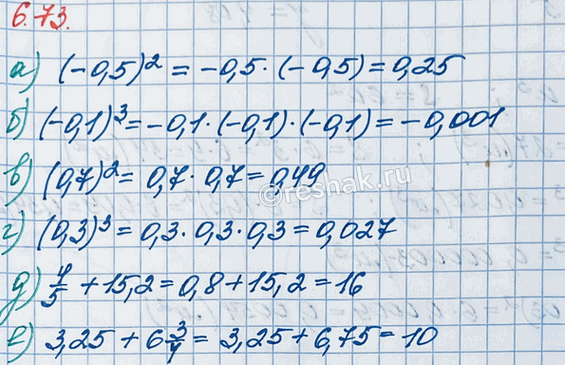 6.73.
а) (-0,5)² = -0,5 · (-0,5) = 0,25
б) (-0,1)³ = -0,1 · (-0,1) · (-0,1) = -0,001
в) (0,7)² = 0,7 · 0,7 = 0,49
г) (0,3)³ = 0,3 · 0,3 · 0,3 = 0,027
д) 4/5 + 15,2 = 0,8 + 15,2 = 16
е) 3,25 + 6 3/4 = 3,25 + 6,75 = 10
©reshak.ru